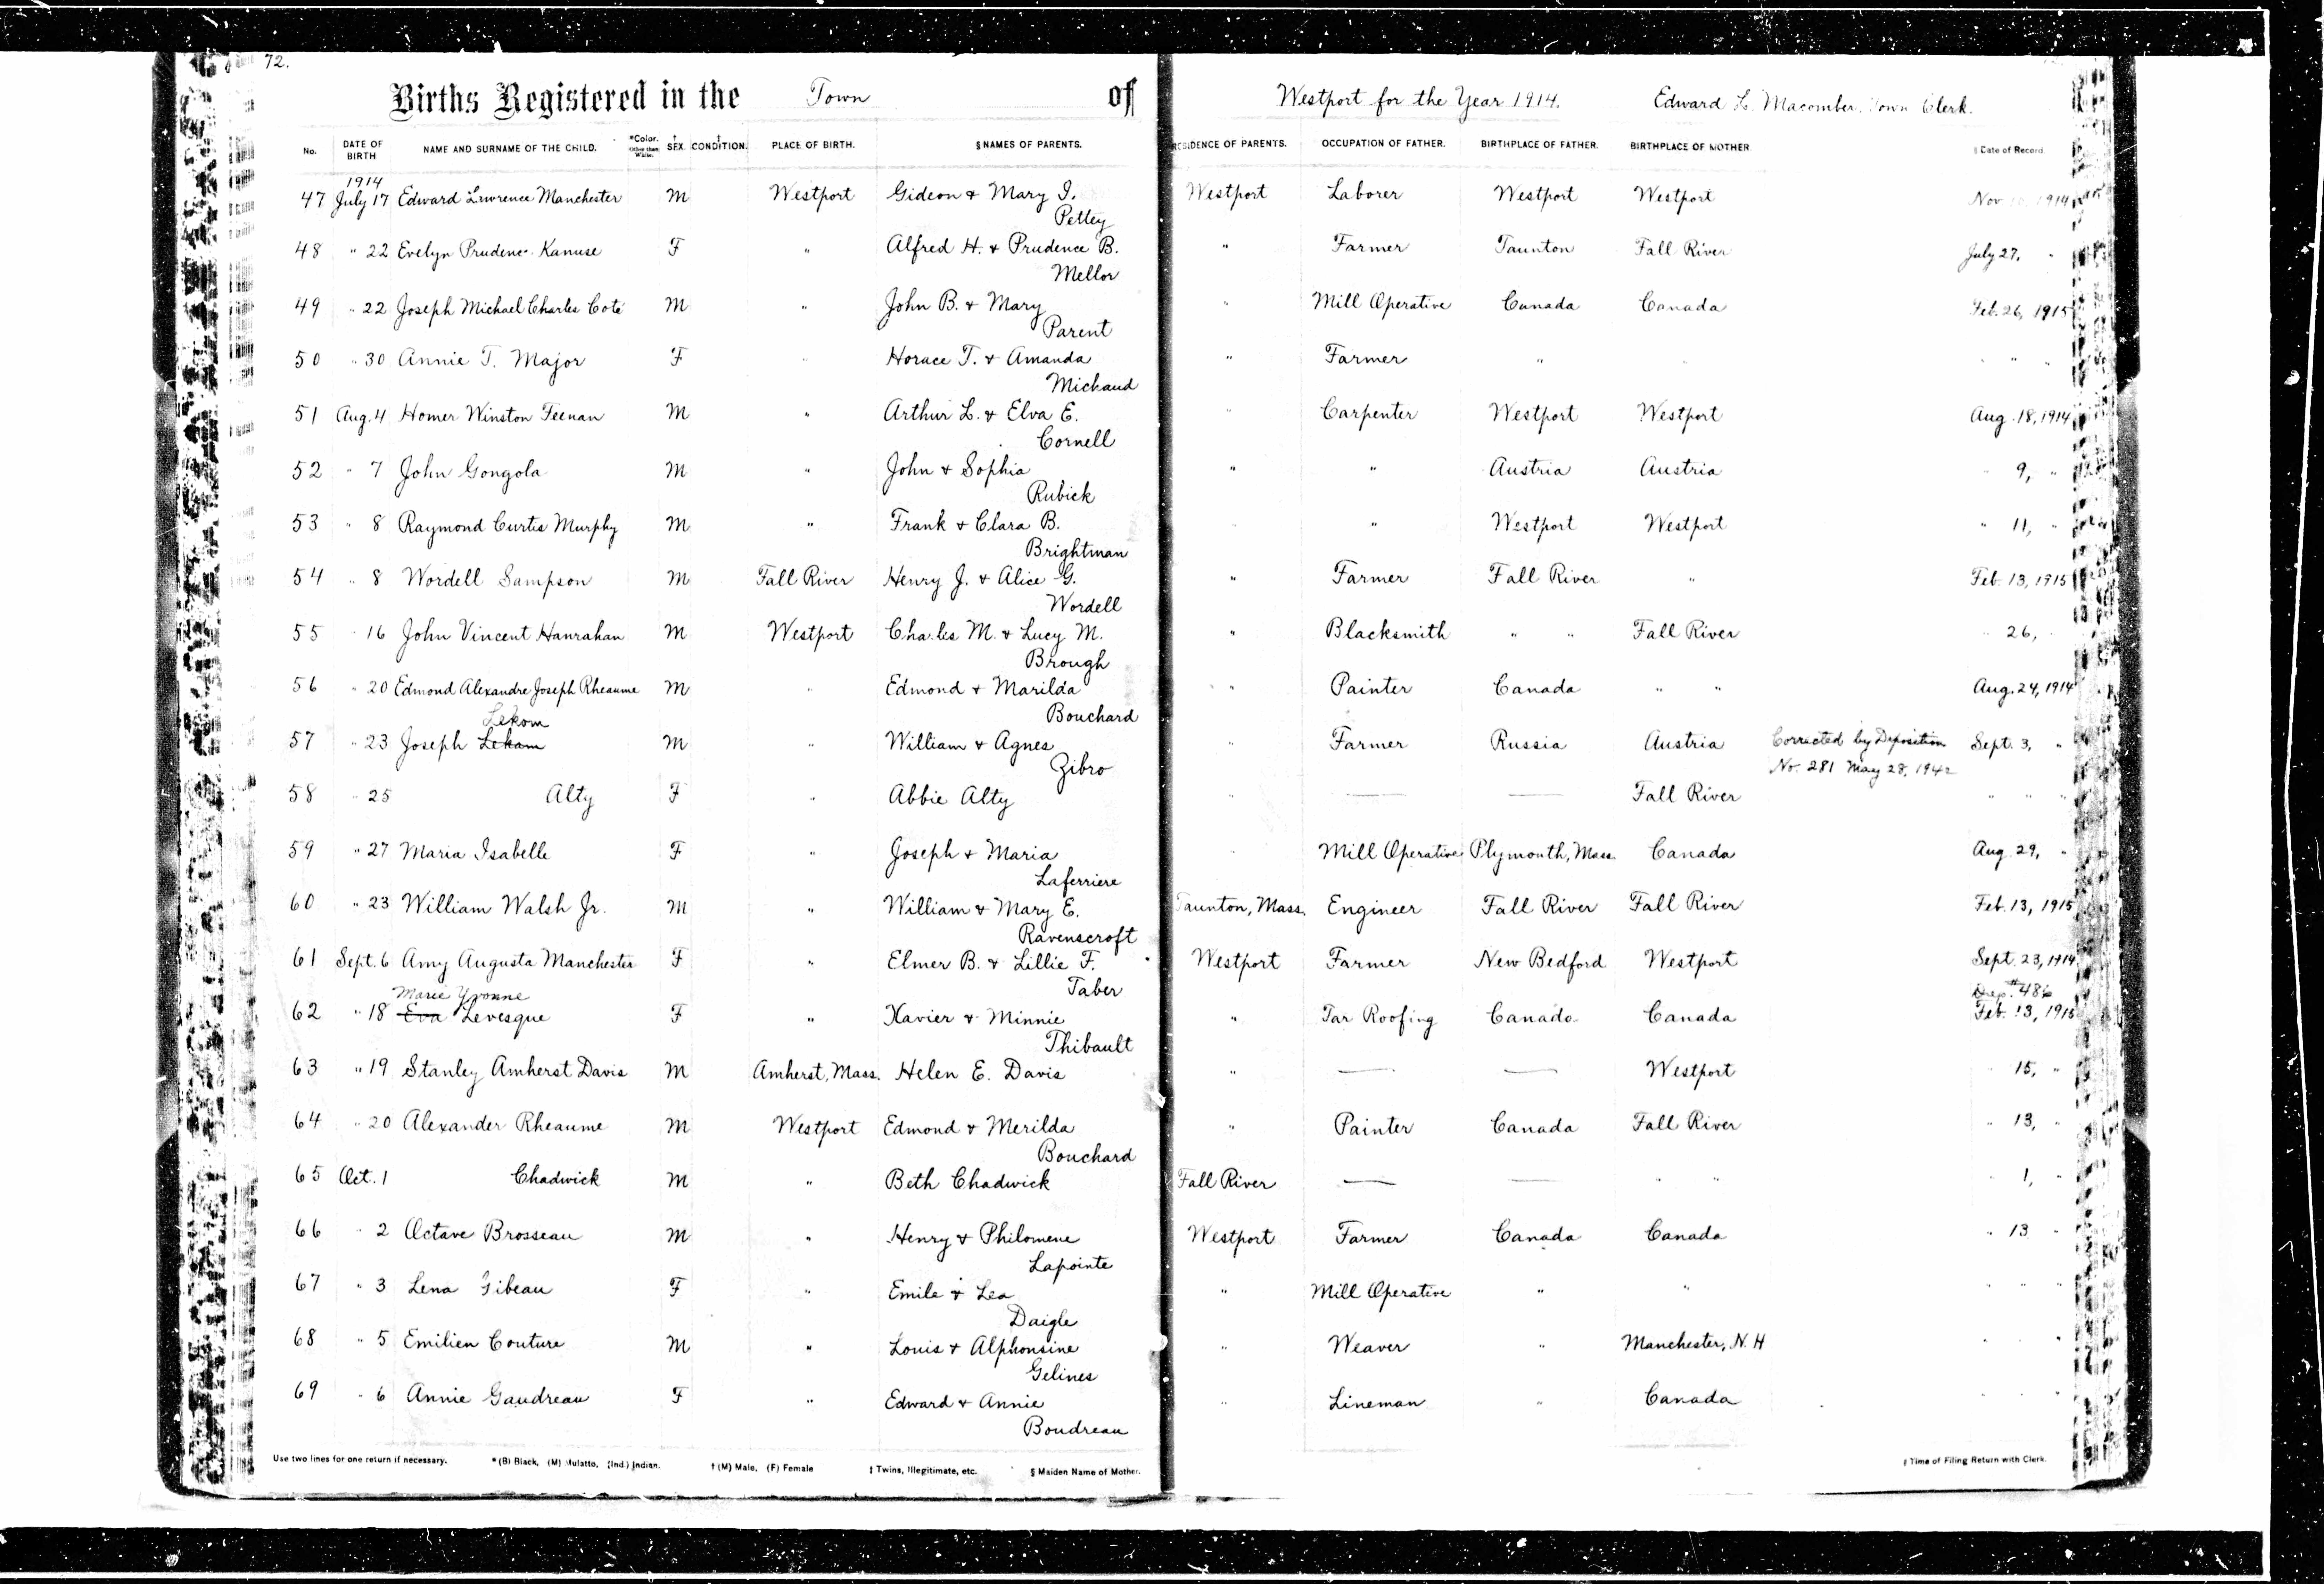 72.
Births Registered in the Town of Westport for the Year 1914. Edward L. Macomber, Town Clerk.
No. DATE OF BIRTH NAME AND SURNAME OF THE CHILD. *Color. Other than White. † SEX. ‡ CONDITION. PLACE OF BIRTH. § NAMES OF PARENTS. RESIDENCE OF PARENTS. OCCUPATION OF FATHER. BIRTHPLACE OF FATHER. BIRTHPLACE OF MOTHER. Date of Record.
1914
47 July 17 Edward Lawrence Manchester M Westport Gideon & Mary I. Westport Laborer Westport Westport Nov. 1914
Pettey
48 " 22 Evelyn Prudence Kanuse F " Alfred H. & Prudence B. " Farmer Taunton Fall River July 27, "
Mellor
49 " 22 Joseph Michael Charles Coté M " John B. & Mary " Mill Operative Canada Canada Feb. 26, 1915
Parent
50 " 30 Annie T. Major F " Horace T. & Amanda " Farmer " " " "
Michaud
51 Aug. 4 Homer Winston Feenan M " Arthur L. & Elva E. " Carpenter Westport Westport Aug. 18, 1914
Cornell
52 " 7 John Gongola M " John & Sophia " " Austria Austria " 9, "
Rubick
53 " 8 Raymond Curtis Murphy M " Frank & Clara B. " " Westport Westport " 11, "
Brightman
54 " 8 Wordell Sampson M Fall River Henry J. & Alice G. " Farmer Fall River " Feb. 13, 1915
Wordell
55 " 16 John Vincent Hanrahan M Westport Charles M. & Lucy M. " Blacksmith " " Fall River " 26, "
Brough
56 " 20 Edmond Alexandre Joseph Rheaume M " Edmond & Marilda " Painter Canada " " Aug. 24, 1914
Bouchard
Lekom
57 " 23 Joseph Lekam M " William & Agnes " Farmer Russia Austria Corrected by Deposition Sept. 3, "
Zibro No. 281 May 28, 1942
58 " 25 Alty F " Abbie Alty " — — Fall River " " "
59 " 27 Maria Isabelle F " Joseph & Maria " Mill Operative Plymouth, Mass. Canada Aug. 29, "
Laferriere
60 " 23 William Walsh Jr. M " William & Mary E. Taunton, Mass. Engineer Fall River Fall River Feb. 13, 1915
Ravenscroft
61 Sept. 6 Amy Augusta Manchester F " Elmer B. & Lillie F. Westport Farmer New Bedford Westport Sept. 23, 1914
Taber
Marie Yvonne Dep. #486
62 " 18 Eva Levesque F " Xavier & Minnie " Tar Roofing Canada Canada Feb. 13, 1915
Thibault
63 " 19 Stanley Amherst Davis M Amherst, Mass. Helen E. Davis " — — Westport " 15, "
64 " 20 Alexander Rheaume M Westport Edmond & Merilda " Painter Canada Fall River " 13, "
Bouchard
65 Oct. 1 Chadwick M " Beth Chadwick Fall River — — " " " 1, "
66 " 2 Octave Brosseau M " Henry & Philomene Westport Farmer Canada Canada " 13 "
Lapointe
67 " 3 Lena Gibeau F " Emile & Lea " Mill Operative " " " " "
Daigle
68 " 5 Emilien Couture M " Louis & Alphonsine " Weaver " Manchester, N. H " "
Gelines
69 " 6 Annie Gaudreau F " Edward & Annie " Lineman " Canada " " "
Boudreau
Use two lines for one return if necessary. *(B) Black, (M) Mulatto, (Ind.) Indian. † (M) Male, (F) Female ‡ Twins, Illegitimate, etc. § Maiden Name of Mother. Time of Filing Return with Clerk.